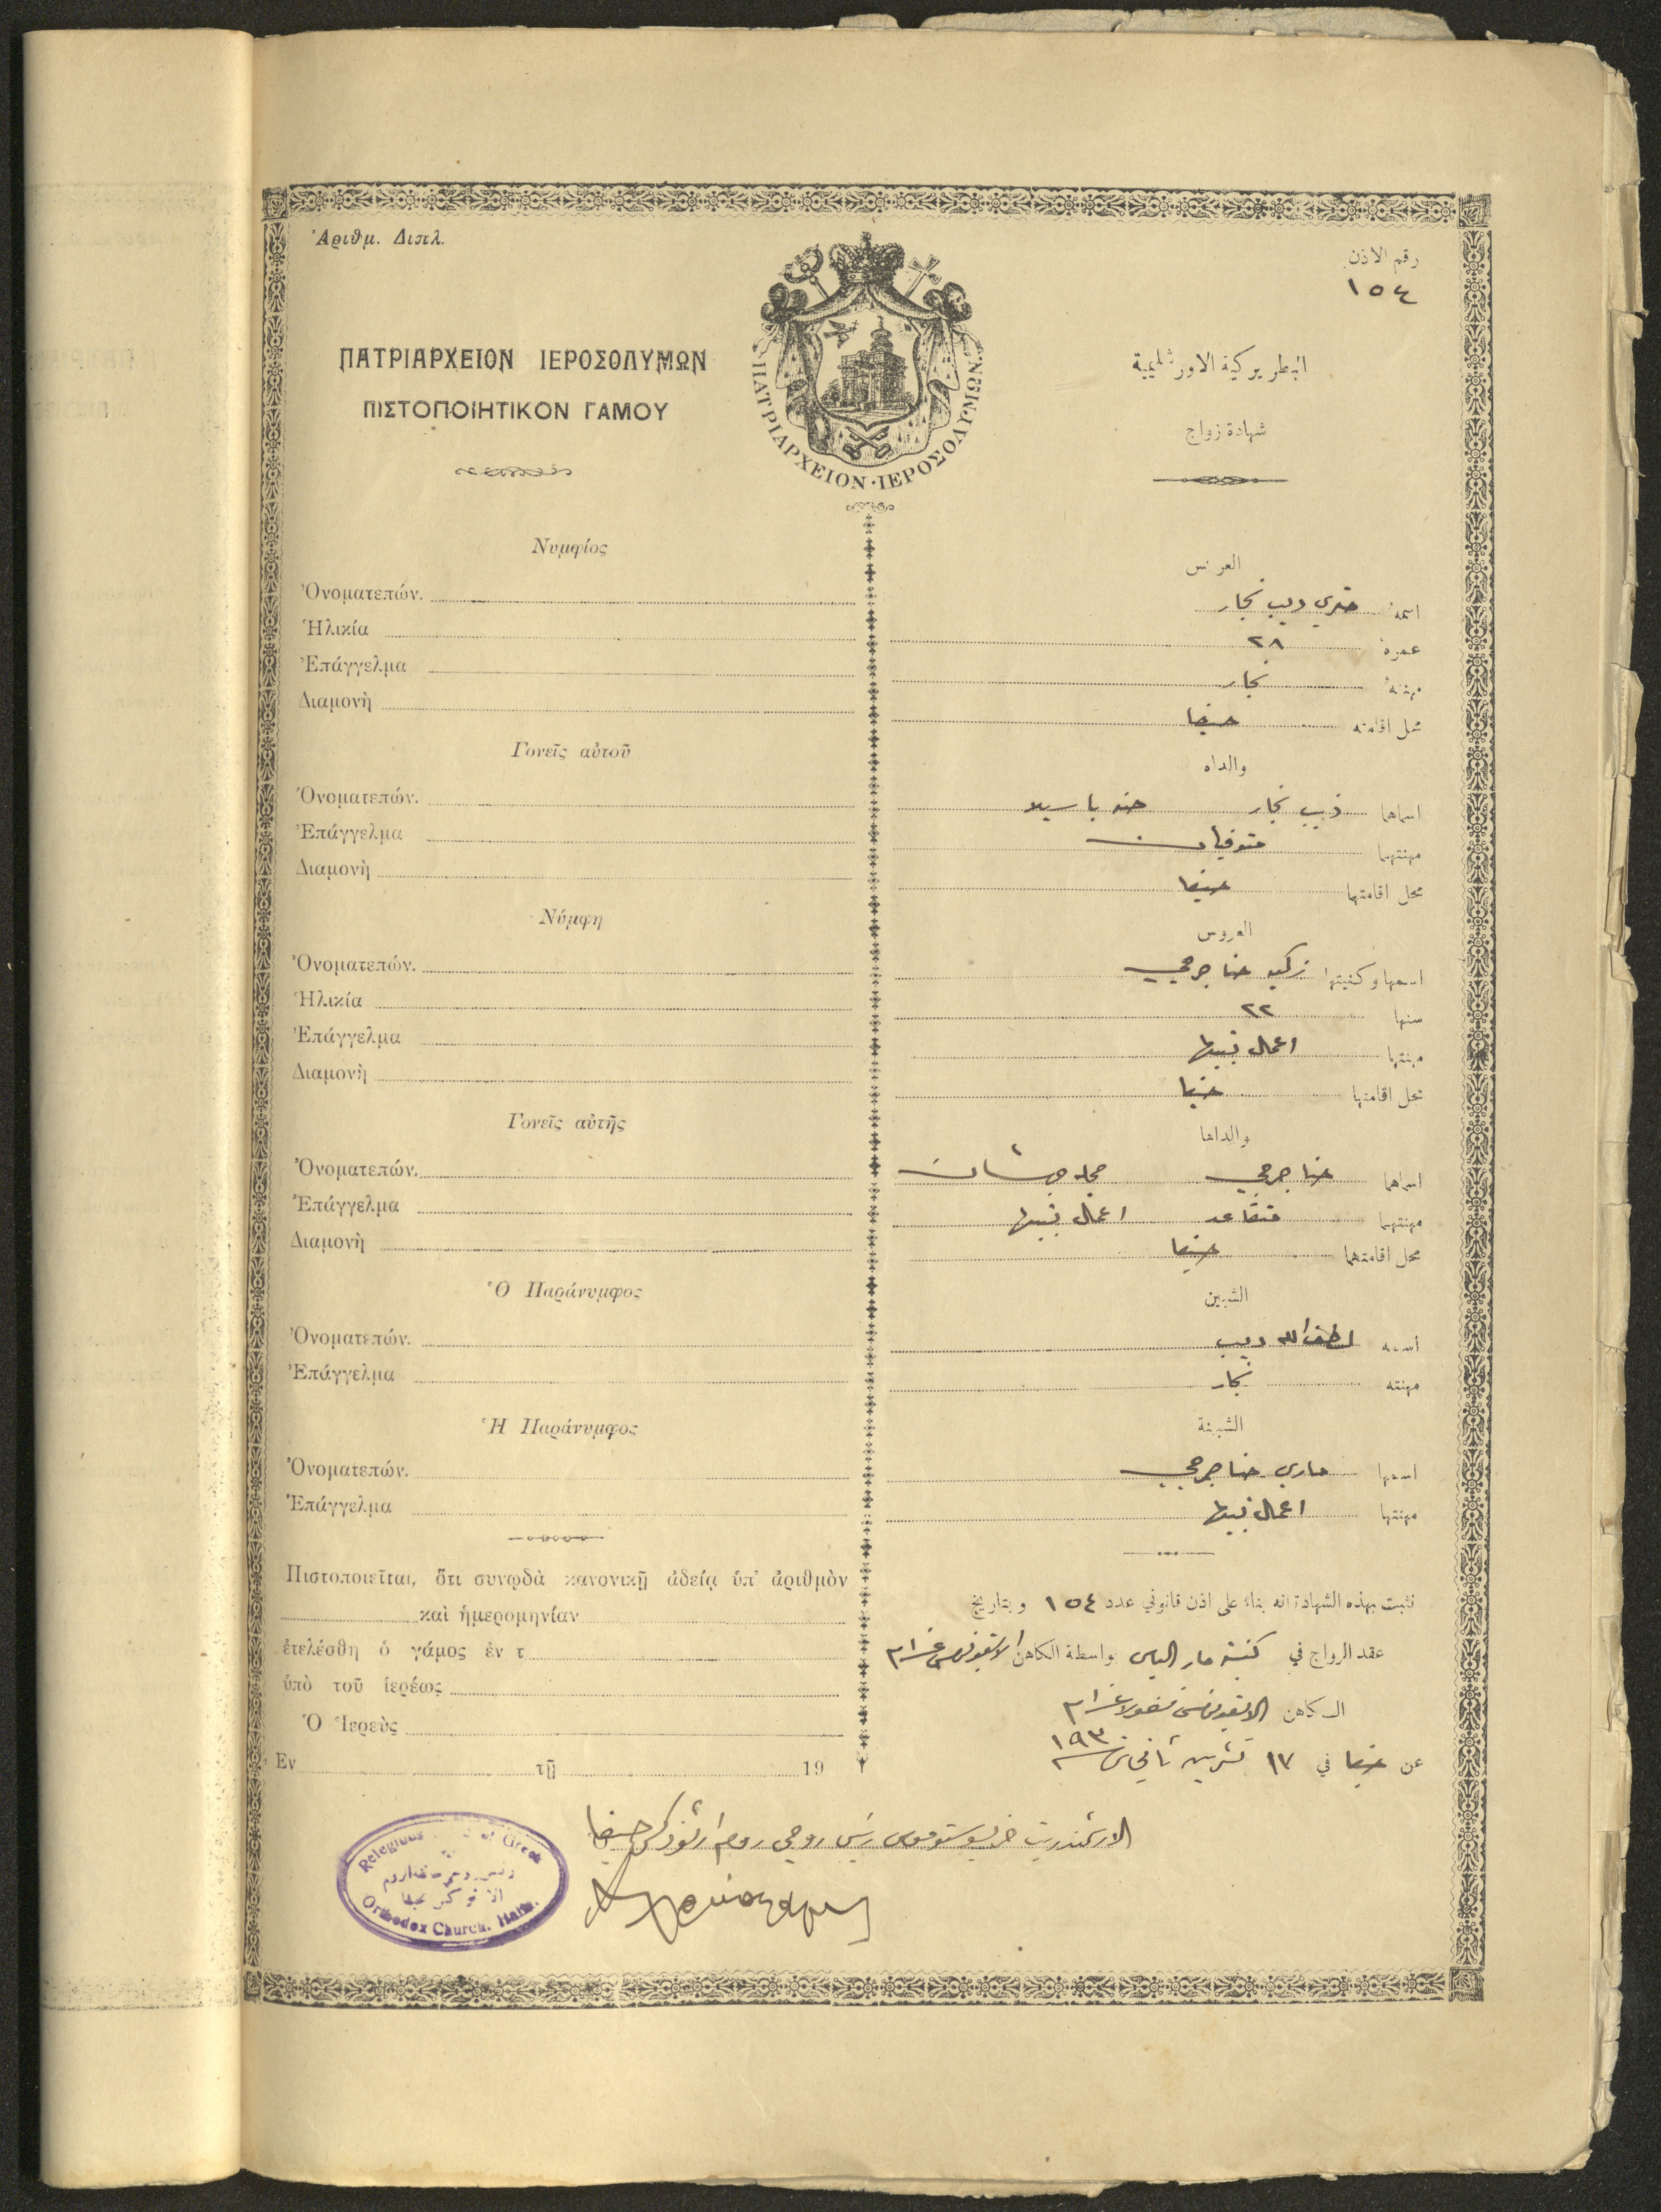 Ἀριθμ. Διπλ.
رقم الاذن
١٥٤
ΠΑΤΡΙΑΡΧΕΙΟΝ ΙΕΡΟΣΟΛΥΜΩΝ
ΠΙΣΤΟΠΟΙΗΤΙΚΟΝ ΓΑΜΟΥ
ΠΑΤΡΙΑΡΧΕΙΟΝ·ΙΕΡΟΣΟΛΥΜΩΝ
البطريركية الاورشليمية
شهادة زواج
Νυμφίος
Ὀνοματεπών.
Ἡλικία
Ἐπάγγελμα
Διαμονὴ
Γονεῖς αὐτοῦ
Ὀνοματεπών.
Ἐπάγγελμα
Διαμονὴ
Νύμφη
Ὀνοματεπών.
Ἡλικία
Ἐπάγγελμα
Διαμονὴ
Γονεῖς αὐτῆς
Ὀνοματεπών.
Ἐπάγγελμα
Διαμονὴ
Ὁ Παράνυμφος
Ὀνοματεπών.
Ἐπάγγελμα
Ἡ Παράνυμφος
Ὀνοματεπών.
Ἐπάγγελμα
Πιστοποιεῖται, ὅτι συνῳδὰ κανονικῇ ἀδείᾳ ὑπ' ἀριθμὸν
καὶ ἡμερομηνίαν
ἐτελέσθη ὁ γάμος ἐν τ
ὑπὸ τοῦ ἱερέως
Ὁ Ἱερεὺς
Ἐν τῇ 19
العريس
اسمه متري ديب نجار
عمره ٢٨
مهنته نجار
محل اقامته حيفا
والداه
اسماهما ذيب نجار حنه باسيلا
مهنتهما متوفيان
محل اقامتهما حيفا
العروس
اسمها وكنيتها زكيه حنا جرجي
سنها ٢٢
مهنتها اعمال بيتها
محل اقامتها حيفا
والداها
اسماهما حنا جرجي
مهنتهما متقاعد اعمال بيتها
محل اقامتهما حيفا
الشبين
اسمه لطف الله ديب
مهنته نجار
الشبينة
اسمها ماري حنا جرجي
مهنتها اعمال بيتها
نثبت بهذه الشهادة انه بناء على اذن قانوني عدد ١٥٤ وبتاريخ
عقد الزواج في كنيسة مار الياس بواسطة الكاهن
الكاهن
عن حيفا في ١٧ تشرين ثاني سنة ١٩٣
الارشمندريت خريسوستوموس رئيس روحي روم ارثوذكس حيفا
Relegious of Greek
Orthodox Church. Haifa.